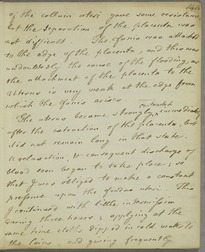 of the collum uteri gave some resistance
at the separation of the placenta was
not difficult. The funis was attached
to the edge of the placenta, and this was
undoubtedly the cause of the flooding, as
the attachment of the placenta to the
uterus is very weak at the edge from
which the funis arises.
The uterus became strongly contracted
after the extraction of the placenta, but
did not remain long in that state.
A relaxation, & consequent discharge of
blood soon began to take place; so
that I was obliged to make a constant
pressure upon the fundus uteri. This
I continued with little intermission
during three hours & applying at the
same time cloths dipped in cold water to
the loins, and giving frequently